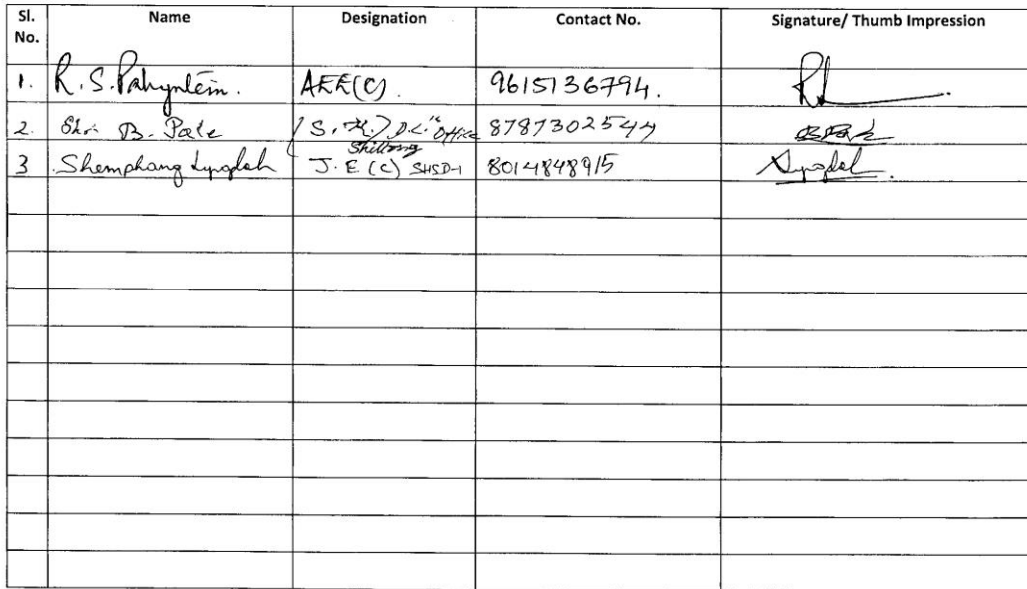 Sl. No. Name Designation Contact No. Signature/ Thumb Impression
1. R.S. Pahyntein. AEE(C). 9615136794.
2. Shri B. Pale (S.K.) D.C.'s Office Shillong 8787302544
3 Shemphang Lyngdoh J.E (C) SHSD-1 8014848915 Lyngdoh